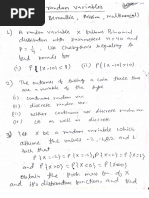 random variables
(Bernoulli, Poisson, multinomial)
1) A random variable X follows Binomial
distribution with parameters n = 40 and
P = 1/4. Use Chebyshev's inequality to
find bounds for
(i) P{|X-10|<8} (ii)
2) The outcomes of tossing a coin three times
are a variable of the type
(i) Continuous random var
(ii) Discrete random var
(iii) Neither continuous nor discrete random var
(iv) as well as discrete
3) Let X be a random variable which
assumes the values -2, -1, 0, 1 and 2
such that
P{X=-2}=P{X=-1}=P{X=1}=P{X=2}
and P{X<0}=P{X=0}=P{X>0}
Obtain the prob. mass fn of X
and its distribution function, and find